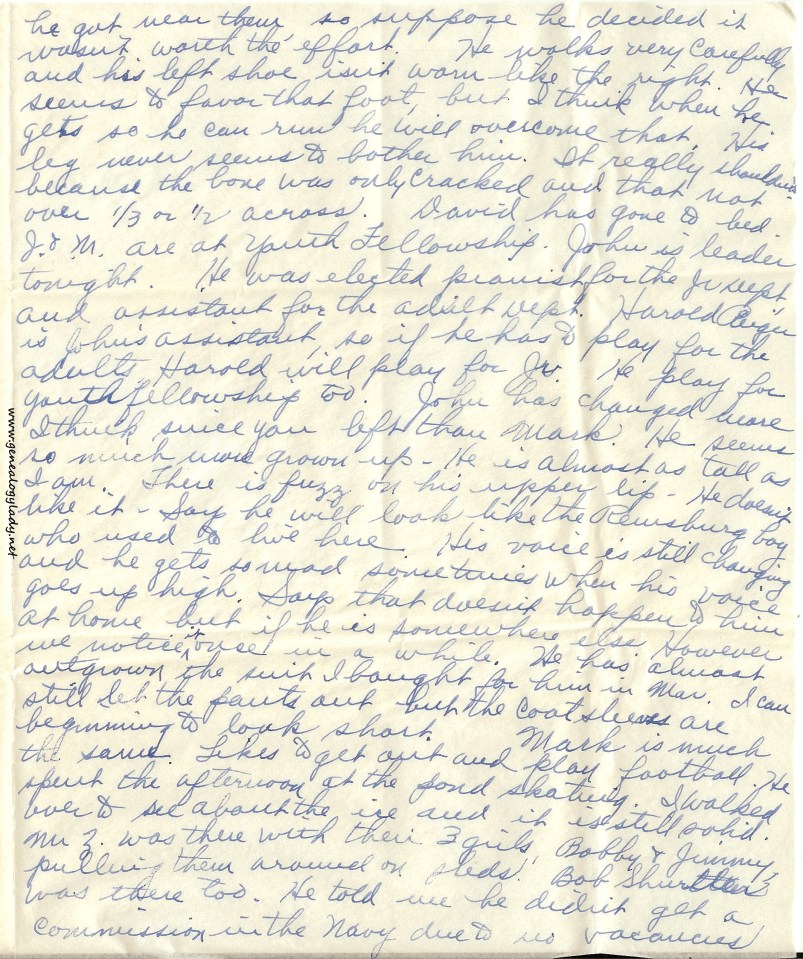 he got near them so suppose he decided it
wasn't worth the effort. He walks very carefully
and his left shoe isn't worn like the right. He
seems to favor that foot, but I think when he
gets so he can run he will overcome that. His
leg never seems to bother him. It really shouldn't
because the bone was only cracked and that not
over 1/3 or 1/2 across. David has gone to bed.
J. & M. are at Youth Fellowship. John is leader
tonight. He was elected pianist for the Jr Dept.,
and assistant for the adult Dept. Harold
is John's assistant, so if he has to play for the
adults Harold will play for Jr. He play for
youth fellowship too. John has changed more
I think since you left than Mark. He seems
so much more grown up - He is almost as tall as
I am. There is fuzz on his upper lip - He doesn't
like it - Say he will look like the Remsburg boy
who used to live here. His voice is still changing
and he gets so mad sometimes when his voice
goes up high. Says that doesn't happen to him
at home but if he is somewhere else. However
we notice it once in a while. He has almost
outgrown the suit I bought for him in Mar. I can
still let the pants out but the coat sleeves are
beginning to look short. Mark is much
the same. Likes to get out and play football. He
spent the afternoon at the pond skating. I walked
over to see about the ice and it is still solid.
Mr Z. was there with their 3 girls, Bobby & Jimmy,
pulling them around on sleds. Bob
was there too. He told me he didn't get a
commission in the Navy due to no vacancies
www.genealogylady.net